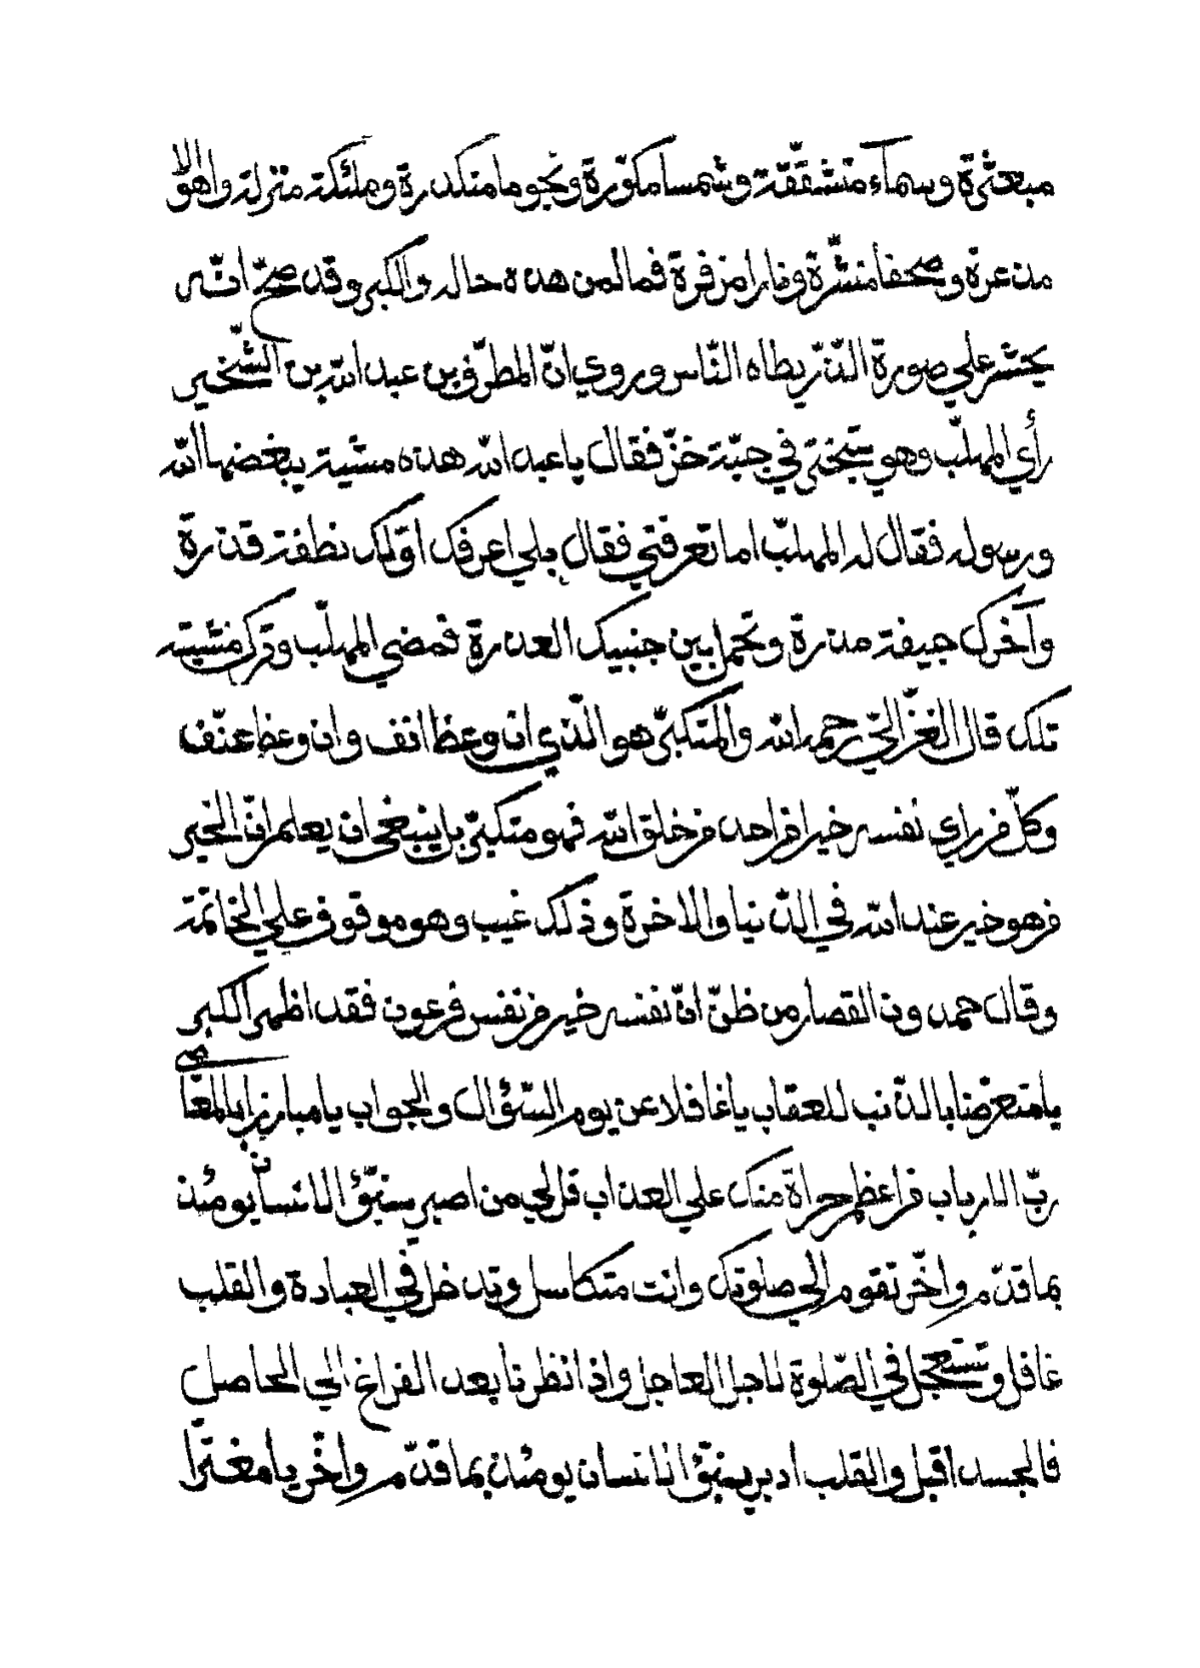 مبعثرة وسماء متشقّقة وشمسا مكوّرة ونجوما منكدرة وملئكة منزلة واهوالا
مذعرة وصحفا منشّرة ونارا مزفرة فما لمن هذه حاله والكبر وقد صحّ انّه
يحشر علي صورة الذّرّ يطاه النّاس وروي انّ المطرّف بن عبد الله بن الشّخّير
رأي المهلّب وهو يتبختر في جبّة خزّ فقال يا عبد الله هذه مشية يبغضها الله
ورسوله فقال له المهلّب اما تعرفني فقال بلي اعرفك اوّلك نطفة قذرة
وآخرك جيفة مذرة وتحمل بين جنبيك العذرة فمضي المهلّب وترك مشيته
تلك قال الغزّاليّ رحمه الله والمتكبّر هو الّذي ان وعظ انف وان وعظ عنّف
وكلّ من راي نفسه خيرا من احد من خلق الله فهو متكبّر بل ينبغي ان يعلم انّ الخير
من هو خير عند الله في الدّنيا والاخرة وذلك غيب وهو موقوف علي الخاتمة
وقال حمدون القصّار من ظنّ انّ نفسه خير من نفس فرعون فقد اظهر الكبر
يا متعرّضا بالذّنب للعقاب يا غافلا عن يوم السّؤال والجواب يا مبارزا بالمعاصي
ربّ الارباب من اعظم جراة منك علي العذاب قل لي من اصبر سينبّؤ الانسان يومئذ
بما قدّم واخّر تقوم الي صلوتك وانت متكاسل وتدخل في العبادة والقلب
غافل وتستعجل في الصّلوة لاجل العاجل واذا نظرنا بعد الفراغ الي الحاصل
فالجسد اقبل والقلب ادبر ينبّؤ الانسان يومئذ بما قدّم واخّر يا مغترّا